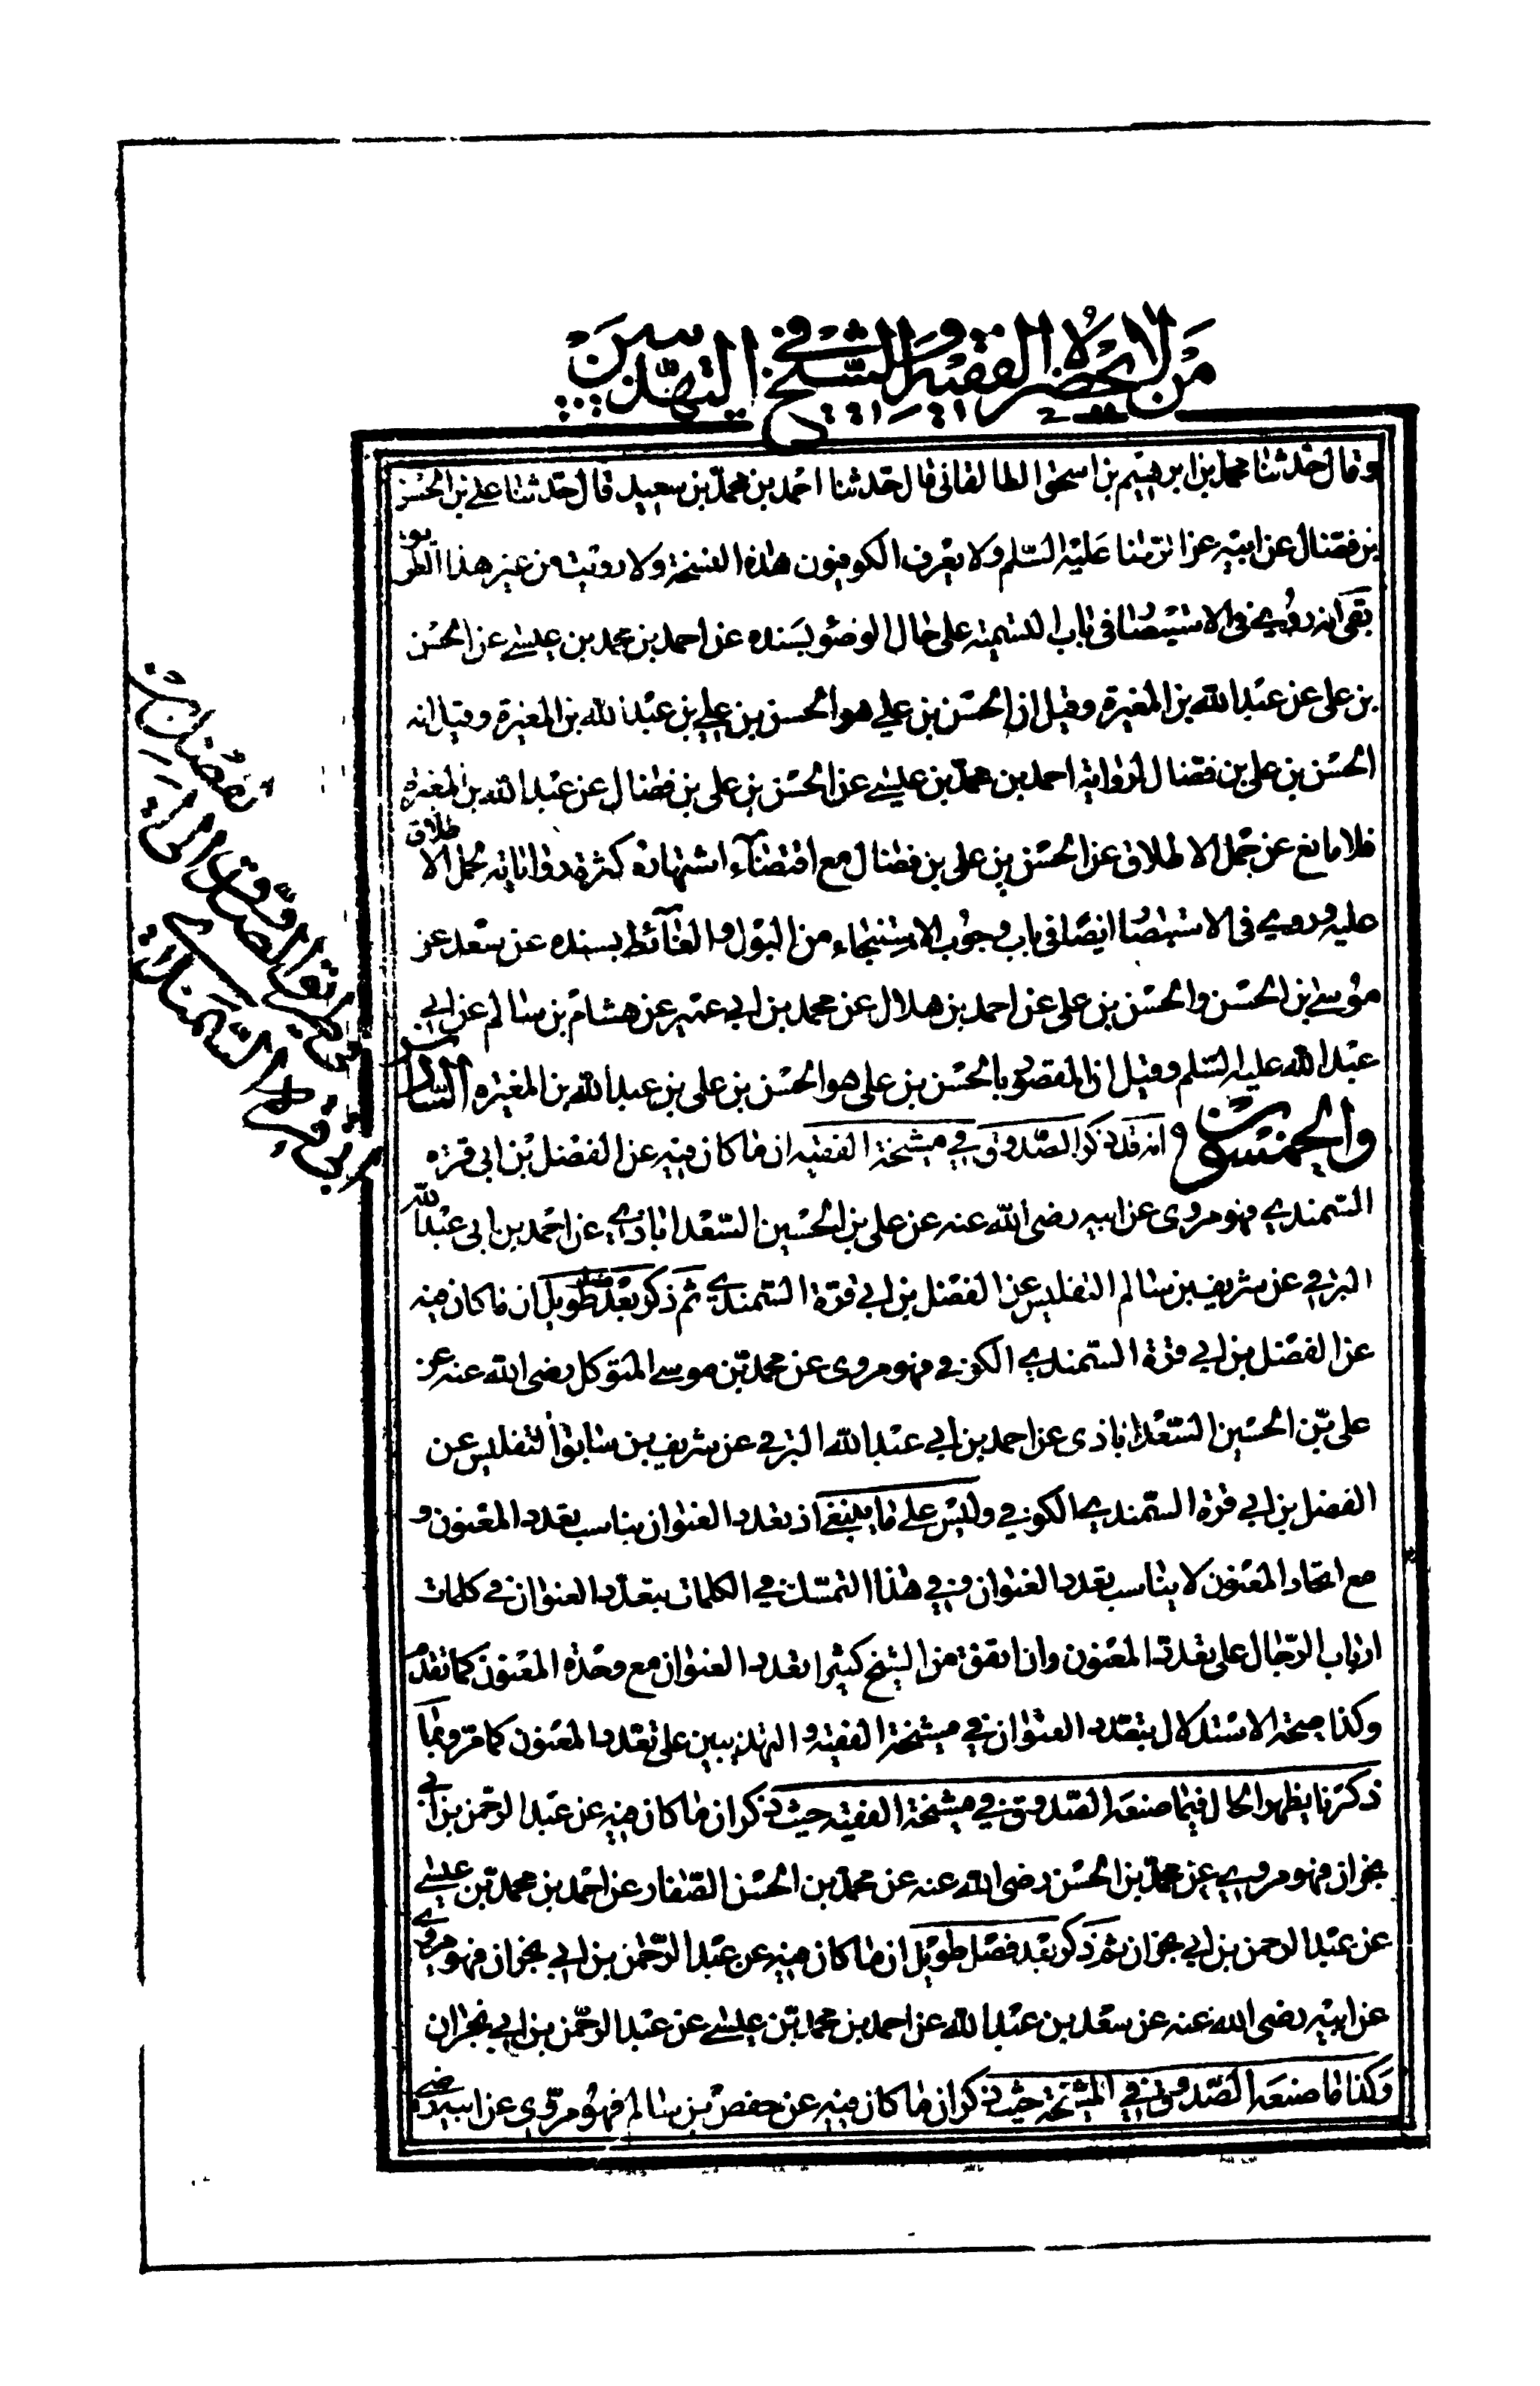 من لا يحضره الفقيه والشيخ في التهذيبين
وقال حدثنا محمد بن ابرهيم بن اسحق الطالقانى قال حدثنا احمد بن محمد بن سعيد قال حدثنا على بن الحسن
بن فضال عن ابيه عن الرضا عليه السلم ولا يعرف الكوفيون هذه النسخة ولا رويت من غير هذا الطريق
بقى انه روى فى الاستبصار فى باب التسمية على حال الوضوء بسنده عن احمد بن محمد بن عيسى عن الحسن
بن على عن عبد الله بن المغيرة وقيل ان الحسن بن على هو الحسن بن على بن عبد الله بن المغيرة وقيل انه
الحسن بن على بن فضال لرواية احمد بن محمد بن عيسى عن الحسن بن على بن فضال عن عبد الله بن المغيرة
فلا مانع عن حمل الاطلاق عن الحسن بن على بن فضال مع اقتضاء اشتهاره كثرة رواياته حمل الاطلاق
عليه وروى فى الاستبصار ايضا فى باب وجوب الاستنجاء من البول والغائط بسنده عن سعد عن
موسى بن الحسن والحسن بن على عن احمد بن هلال عن محمد بن ابى عمير عن هشام بن سالم عن ابى
عبد الله عليه السلم وقيل ان المقصود بالحسن بن على هو الحسن بن على بن عبد الله بن المغيره السادس
والخمسون انه قد ذكر الصدوق فى مشيخة الفقيه ان ما كان فيه عن الفضل بن ابى قره
السمندى فهو مروى عن ابيه رضى الله عنه عن على بن الحسين السعدابادى عن احمد بن ابى عبد الله
البرقى عن شريف بن سالم التفليسى عن الفضل بن ابى قرة السمندى ثم ذكر بعد فصل طويل ان ما كان فيه
عن الفضل بن ابى قرة السمندى الكوفى فهو مروى عن محمد بن موسى المتوكل رضى الله عنه عن
على بن الحسين السعدابادى عن احمد بن ابى عبد الله البرقى عن شريف بن سابق التفليسى عن
الفضل بن ابى قرة السمندى الكوفى وليس على ما ينبغى اذ تعدد العنوان يناسب تعدد المعنون و
مع اتحاد المعنون لا يناسب تعدد العنوان وفى هذا التمسك فى الكلمات بتعدد العنوان فى كلمات
ارباب الرجال على تعدد المعنون وان اتفق من الشيخ كثيرا تعدد العنوان مع وحدة المعنون كما تقدم
وكذا صحة الاستدلال بتعدد العنوان فى مشيخة الفقيه والتهذيبين على تعدد المعنون كما مر وبما
ذكرنا يظهر الحال فيما صنعه الصدوق فى مشيخة الفقيه حيث ذكر ان ما كان فيه عن عبد الرحمن بن ابى
نجران فهو مروى عن محمد بن الحسن رضى الله عنه عن محمد بن الحسن الصفار عن احمد بن محمد بن عيسى
عن عبد الرحمن بن ابى نجران ثم ذكر بعد فصل طويل ان ما كان فيه عن عبد الرحمن بن ابى نجران فهو مروى
عن ابيه رضى الله عنه عن سعد بن عبد الله عن احمد بن محمد بن عيسى عن عبد الرحمن بن ابى نجران
وكذا ما صنعه الصدوق فى المشيخة حيث ذكر ان ما كان فيه عن حفص بن سالم فهو مروى عن ابيه رضى